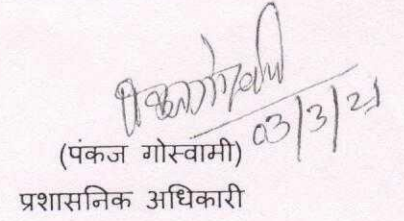 03/3/21
(पंकज गोस्वामी)
प्रशासनिक अधिकारी